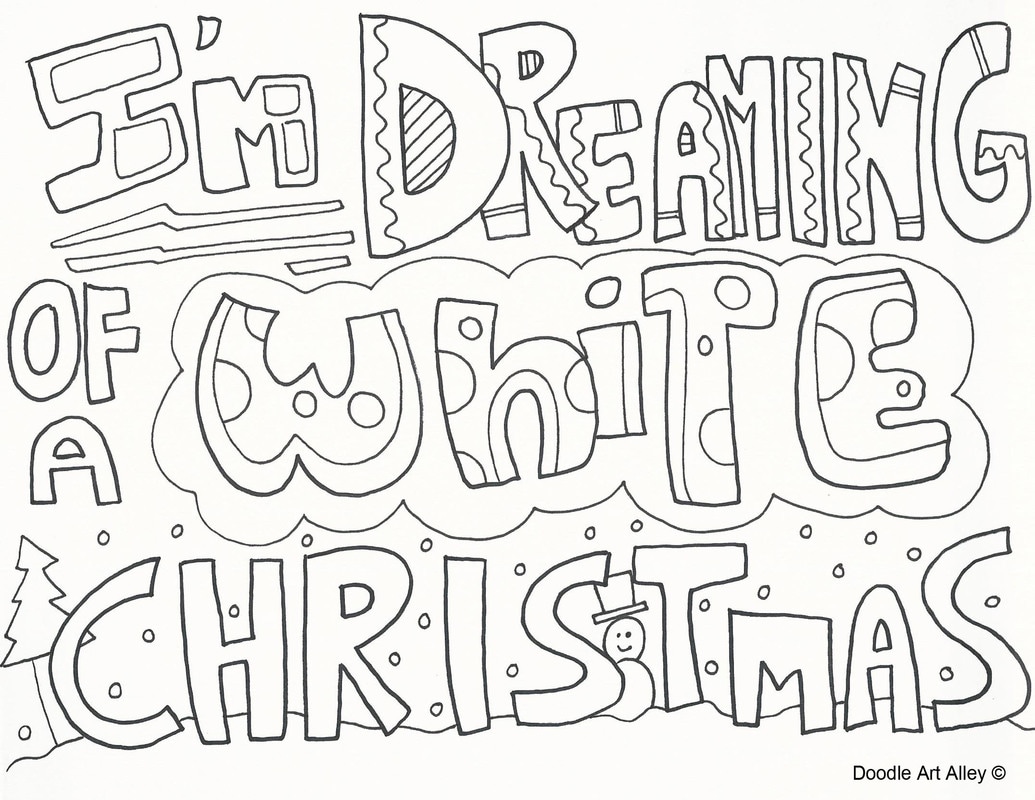 I'm DREAMING
OF WhiTE
A
CHRISTMAS
Doodle Art Alley ©